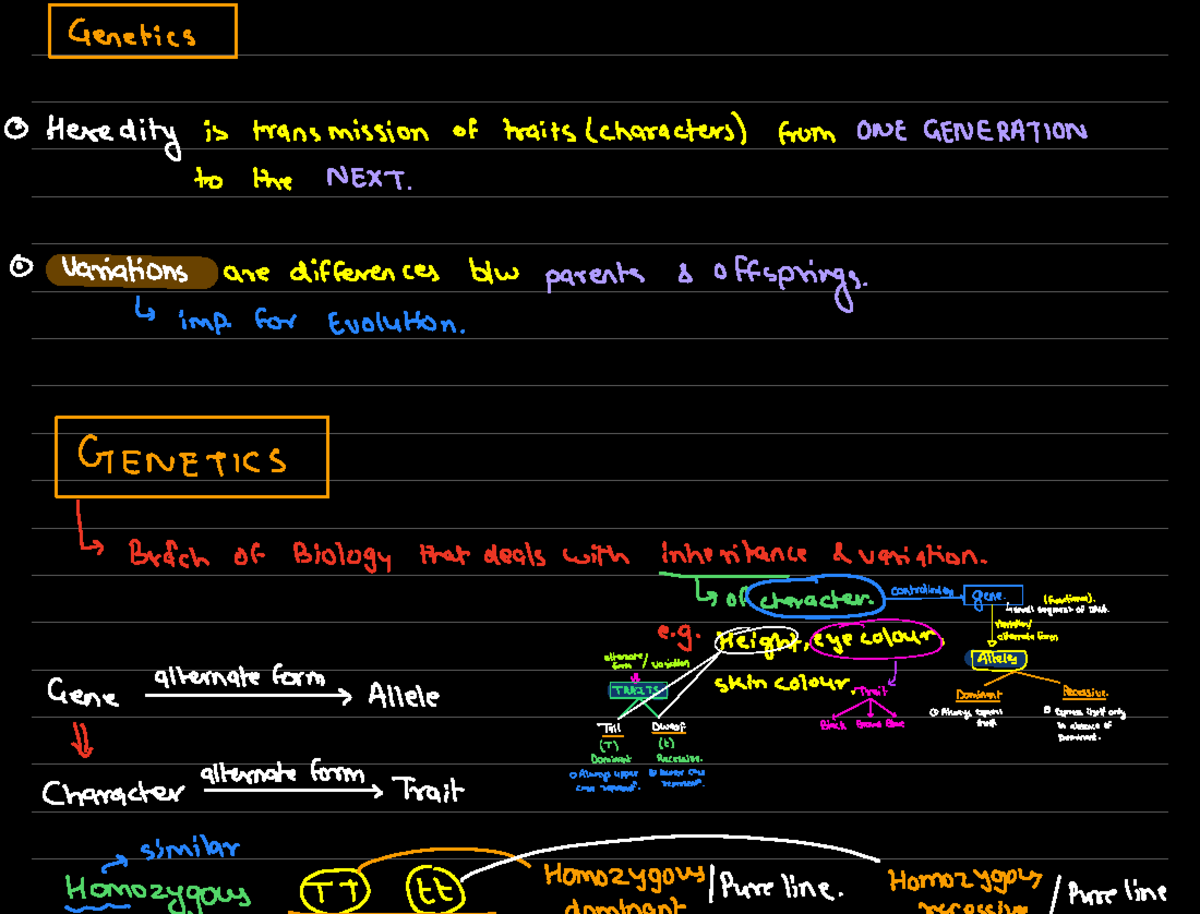 Genetics
Heredity is transmission of traits (characters) from ONE GENERATION
to the NEXT.
Variations are differences b/w parents & offsprings.
imp. for Evolution.
GENETICS
Branch of Biology that deals with inheritance & variation.
of character. controlled by gene. (functional).
small segment of DNA.
variation/
alternate form
e.g. Height, eye colour,
alternate/
form / variation
Alleles
Gene alternate form Allele
TRAITS
skin colour. Trait
Dominant
Recessive.
Tall Dwarf
Black Brown Blue
① Always express
itself
② Express itself only
in absence of
Dominant.
(T) (t)
Dominant Recessive.
Character alternate form Trait
① Always upper
case
② lower case
similar
Homozygous TT tt Homozygous / Pure line. Homozygous / Pure line
dominant recessive